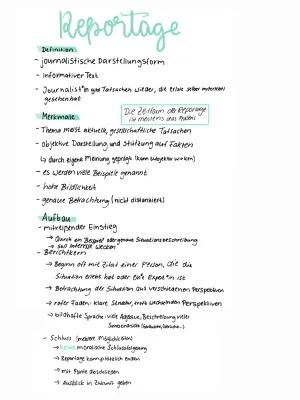 Reportage
Definition
- journalistische Darstellungsform
- informativer Text
- Journalist*in gibt Tatsachen wieder, die er/sie selbst miterlebt
gesehen hat
Die Zeitform der Reportage
ist meistens das Präsens
Merkmale
- Thema meist aktuelle, gesellschaftliche Tatsachen
- objektive Darstellung und Stützung auf Fakten
↳ durch eigene Meinung geprägt (kann subjektiv wirken)
- es werden viele Beispiele genannt
- hohe Bildlichkeit
- genaue Betrachtung (nicht distanziert)
Aufbau
- mitreißender Einstieg
→ Durch ein Beispiel oder genaue Situationsbeschreibung
→ soll Interesse wecken
- Berichtkern
→ Beginn oft mit Zitat einer Person, die die
Situation erlebt hat oder ein*e Expert*in ist
→ Betrachtung der Situation aus verschiedenen Perspektiven
→ roter Faden: klare Struktur, trotz wechselnden Perspektiven
→ bildhafte Sprache: viele Adjektive, Beschreibung vieler
Sinneseindrücke (Geräusche, Gerüche...)
- Schluss (mehrere Möglichkeiten)
→ keine moralische Schlussfolgerung
→ Reportage kann plötzlich enden
→ mit Pointe abschließen
→ Ausblick in Zukunft geben